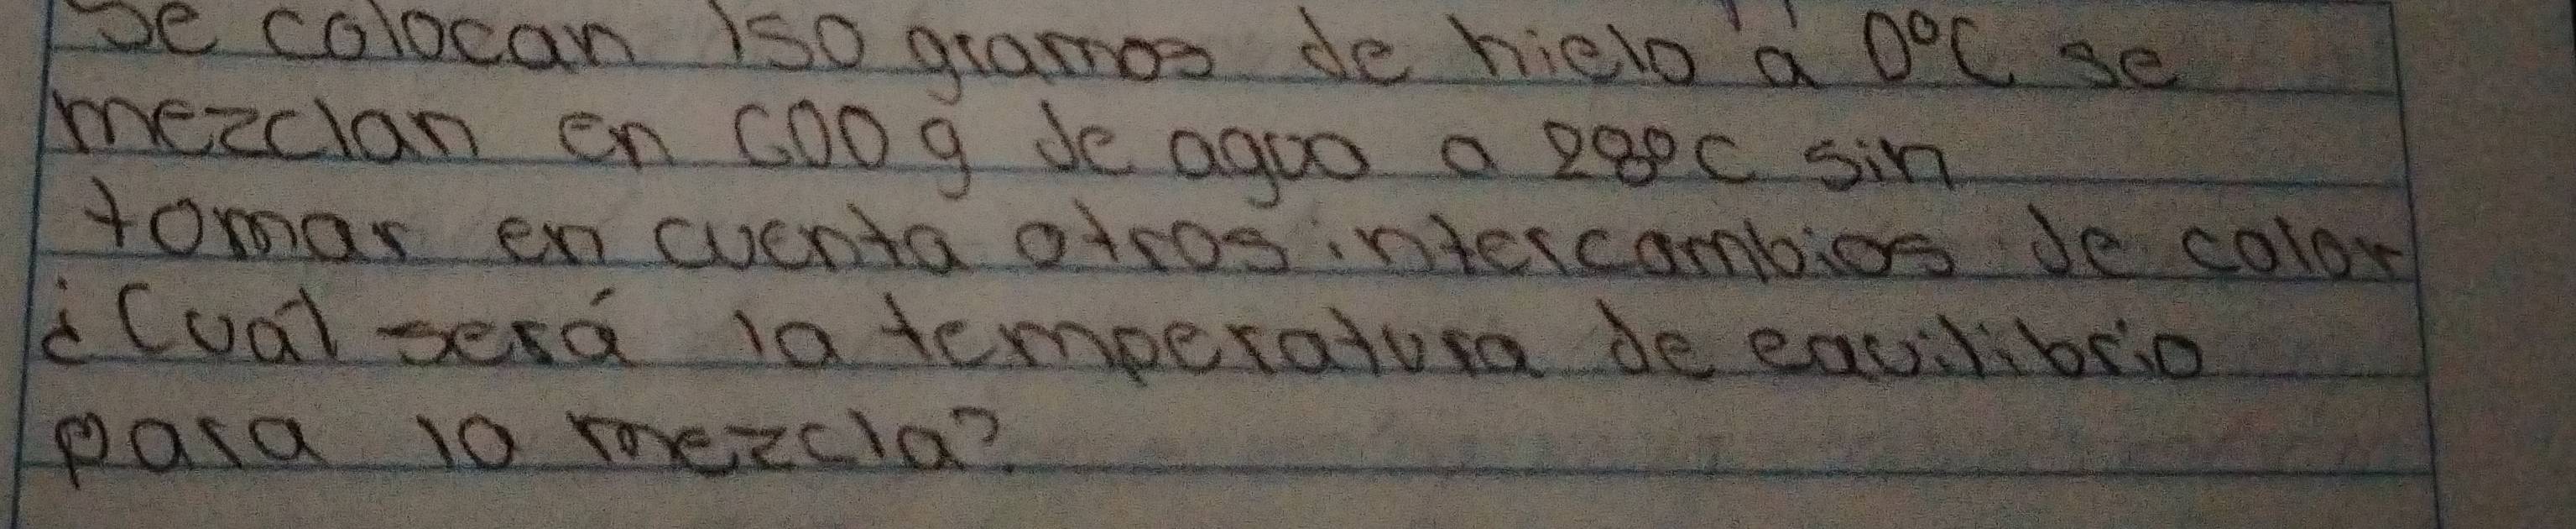 Se colocan 150 gramos de hielo a 0°C se
mezclan en 600 g de agua a 28°C sin
tomar en cuenta otros intercambios de calor
¿Cuál será la temperatura de equilibrio
para la mezcla?